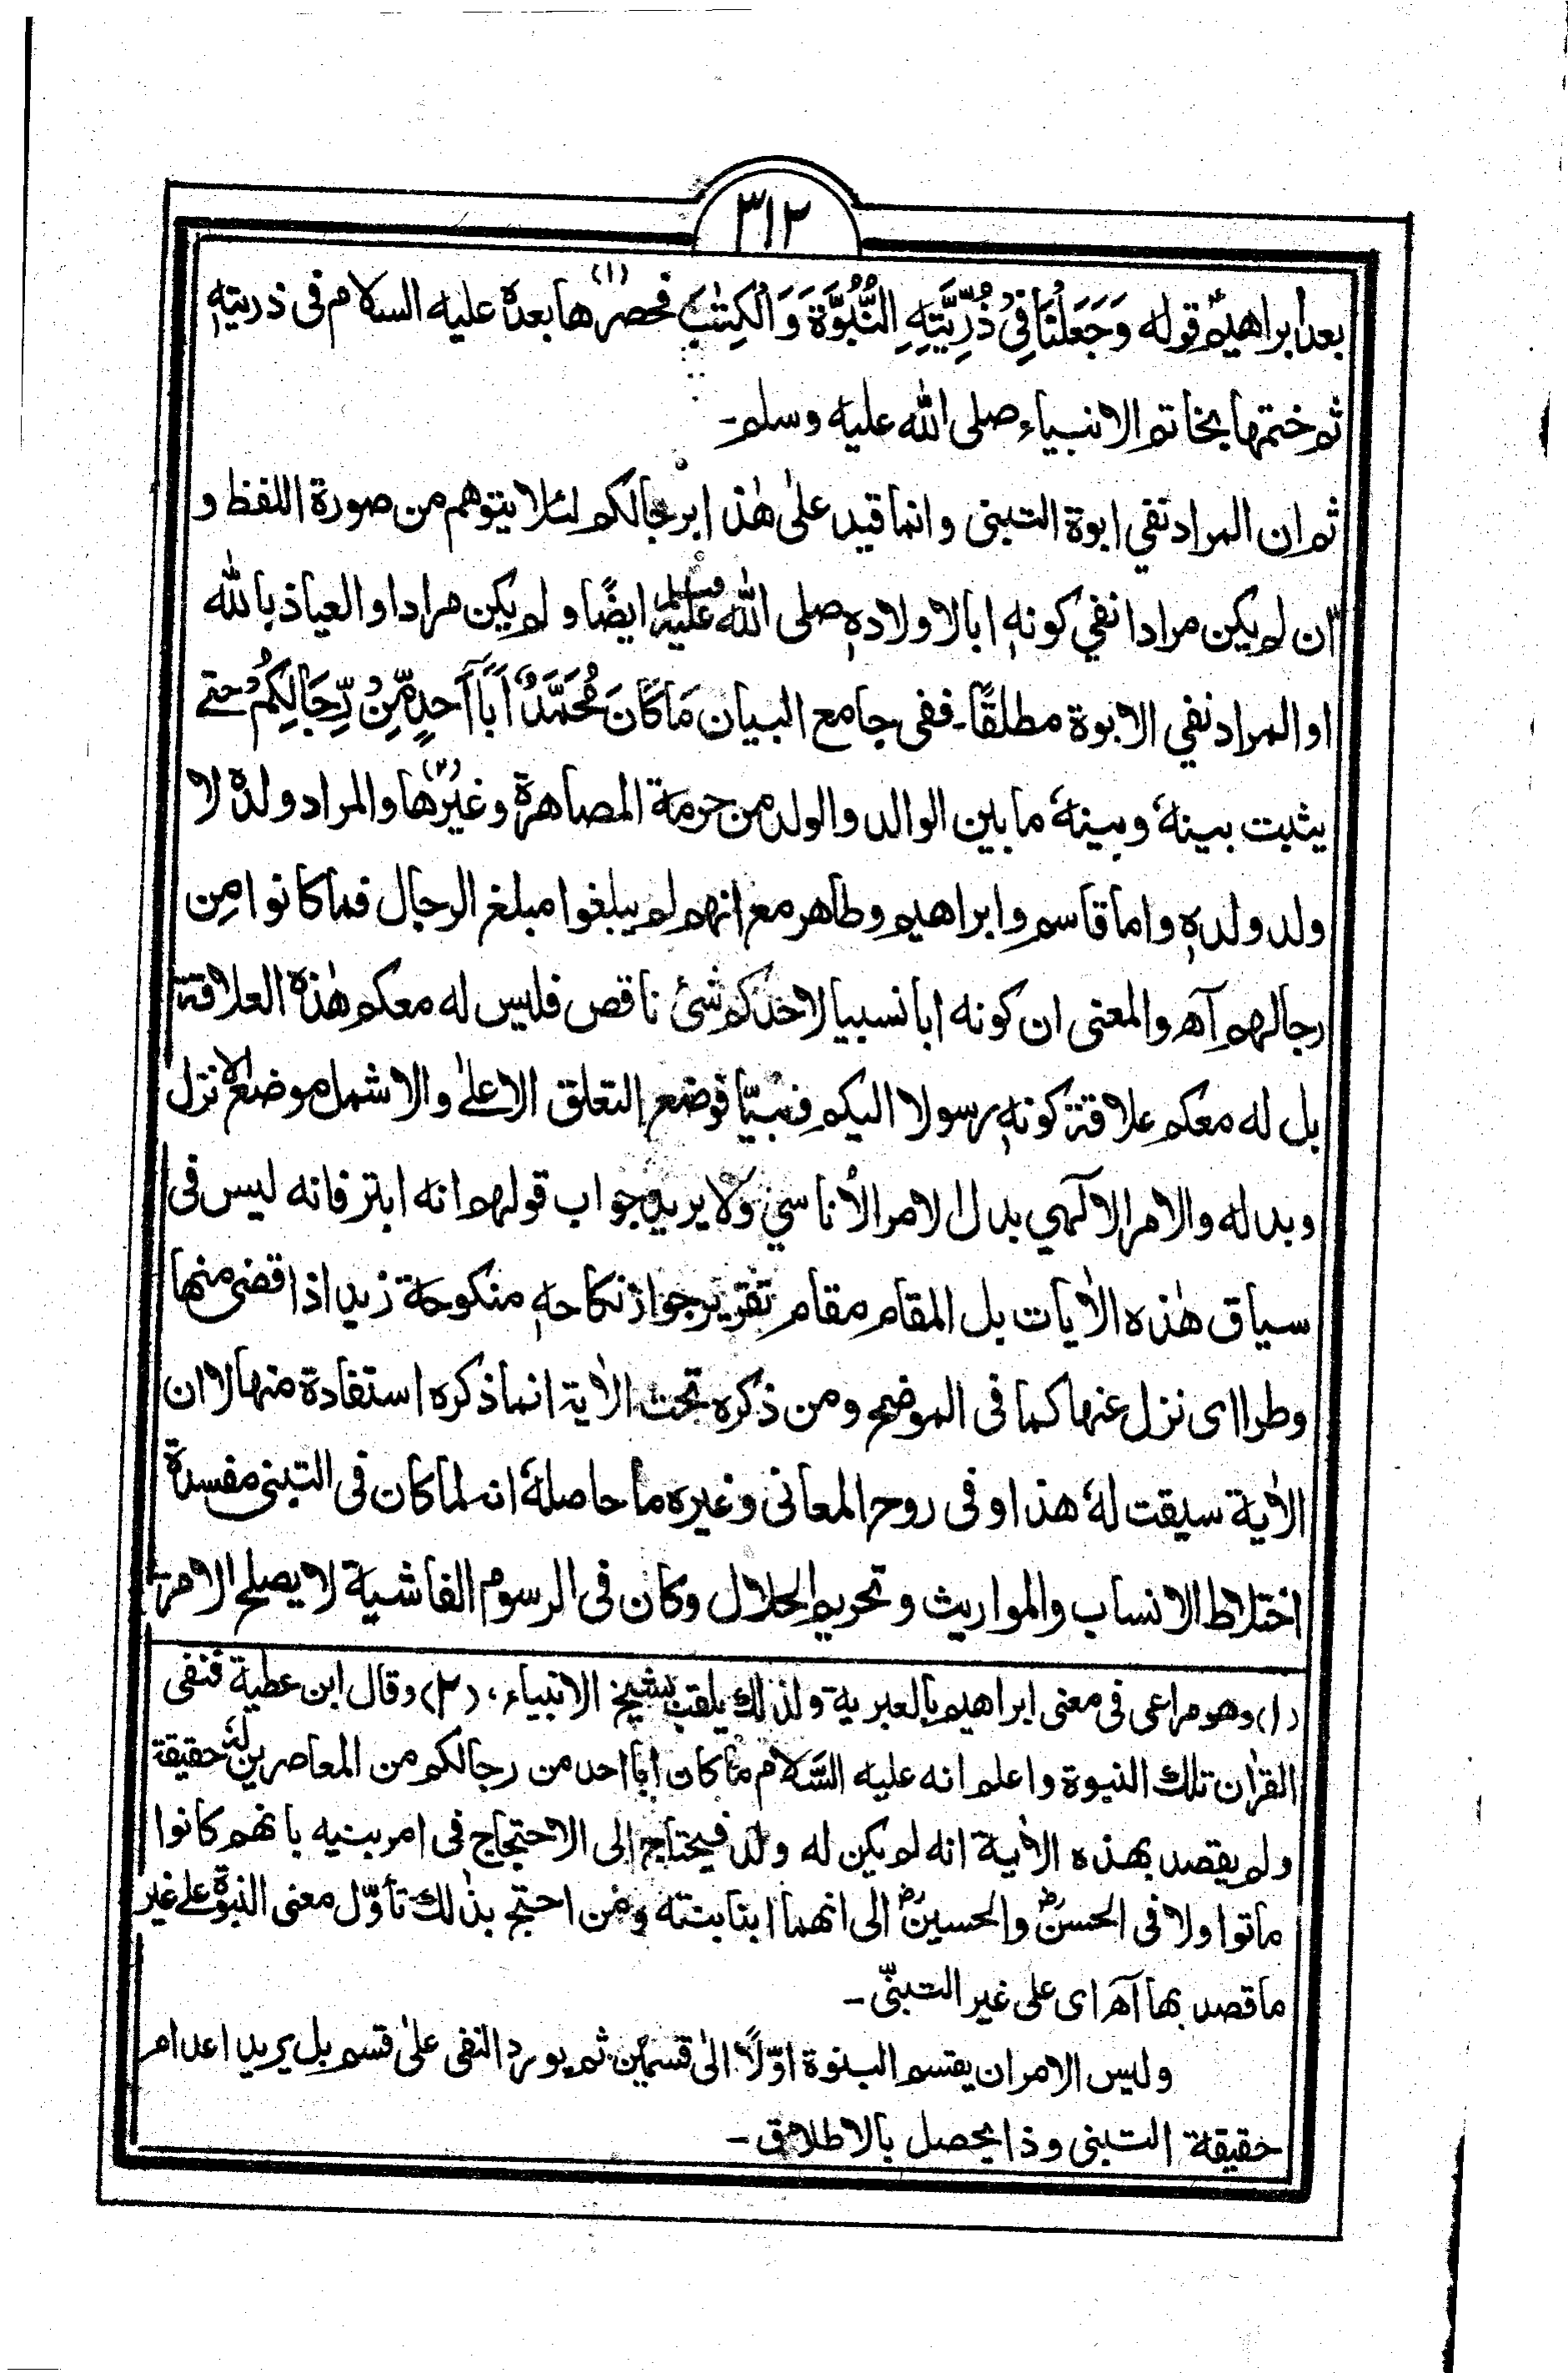 ٣١٢
بعد ابراهيم قوله وَجَعَلْنَا فِيْ ذُرِّيَّتِهِ النُّبُوَّةَ وَالْكِتٰبَ فحصرها (١) بعده عليه السلام فى ذريته
ثم ختمها بخاتم الانبياء صلى الله عليه وسلم۔
ثم ان المراد نفي ابوة التبنى وانما قيد على هٰذا برجالكم لئلا يتوهم من صورة اللفظ و
ان لم يكن مرادا نفي كونه ابا لاولاده صلى الله عليه وسلم ايضًا ولم يكن مرادا والعياذ بالله
او المراد نفي الابوة مطلقًا۔ ففى جامع البيان مَا كَانَ مُحَمَّدٌ اَبَآ اَحَدٍ مِّنْ رِّجَالِكُمْ حتے
يثبت بينهٗ وبينهٗ ما بين الوالد والولد من حرمة المصاهرة وغيرها (٢) والمراد ولده لا
ولد ولده واما قاسم وابراهيم وطاهر مع انهم لم يبلغوا مبلغ الرجال فما كانوا من
رجالهم آھ والمعنى ان كونه ابا نسبيا لاحدكم شئ ناقص فليس له معكم هٰذه العلاقة
بل له معكم علاقة كونه رسولا اليكم فوضع التعلق الاعلىٰ والاشمل موضع الانزل
وبدله والامر الالٰهي بدل الامر الأناسي ولا يريد جواب قولهم انه ابتر فانه ليس فى
سياق هٰذه الاٰيات بل المقام مقام تقرير جواز نكاحه منكوحة زيد اذا قضى منها
وطرا اى نزل عنها كما فى الموضح ومن ذكره تحت الاٰية انما ذكره استفادة منها لا ان
الاٰية سيقت لهٗ هذا وفى روح المعانى وغيره ما حاصلهٗ انه لما كان فى التبنى مفسدة
اختلاط الانساب والمواريث وتحريم الحلال وكان فى الرسوم الفاشية لا يصلح الامر
(١) وهو مراعى فى معنى ابراهيم بالعبرية ولذلك يلقب بشيخ الانبياء، (٢) وقال ابن عطية فنفى
القراٰن تلك النبوة واعلم انه عليه السَّلام ما كان ابا احد من رجالكم من المعاصرين له حقيقة
ولم يقصد بهذه الاٰية انه لم يكن له ولد فيحتاج الى الاحتجاج فى امر بنيه بانهم كانوا
ماتوا ولا فى الحسنؓ والحسينؓ الى انهما ابنا بنته ومن احتج بذٰلك تأوّل معنى النبوة على غير
ما قصد بها آھ اى على غير التبنّى۔
وليس الامر ان يقتسم البنوة اوّلًا الىٰ قسمين ثم يورد النفى علىٰ قسم بل يريد اعدام
حقيقة التبنى وذا يحصل بالاطلاق۔